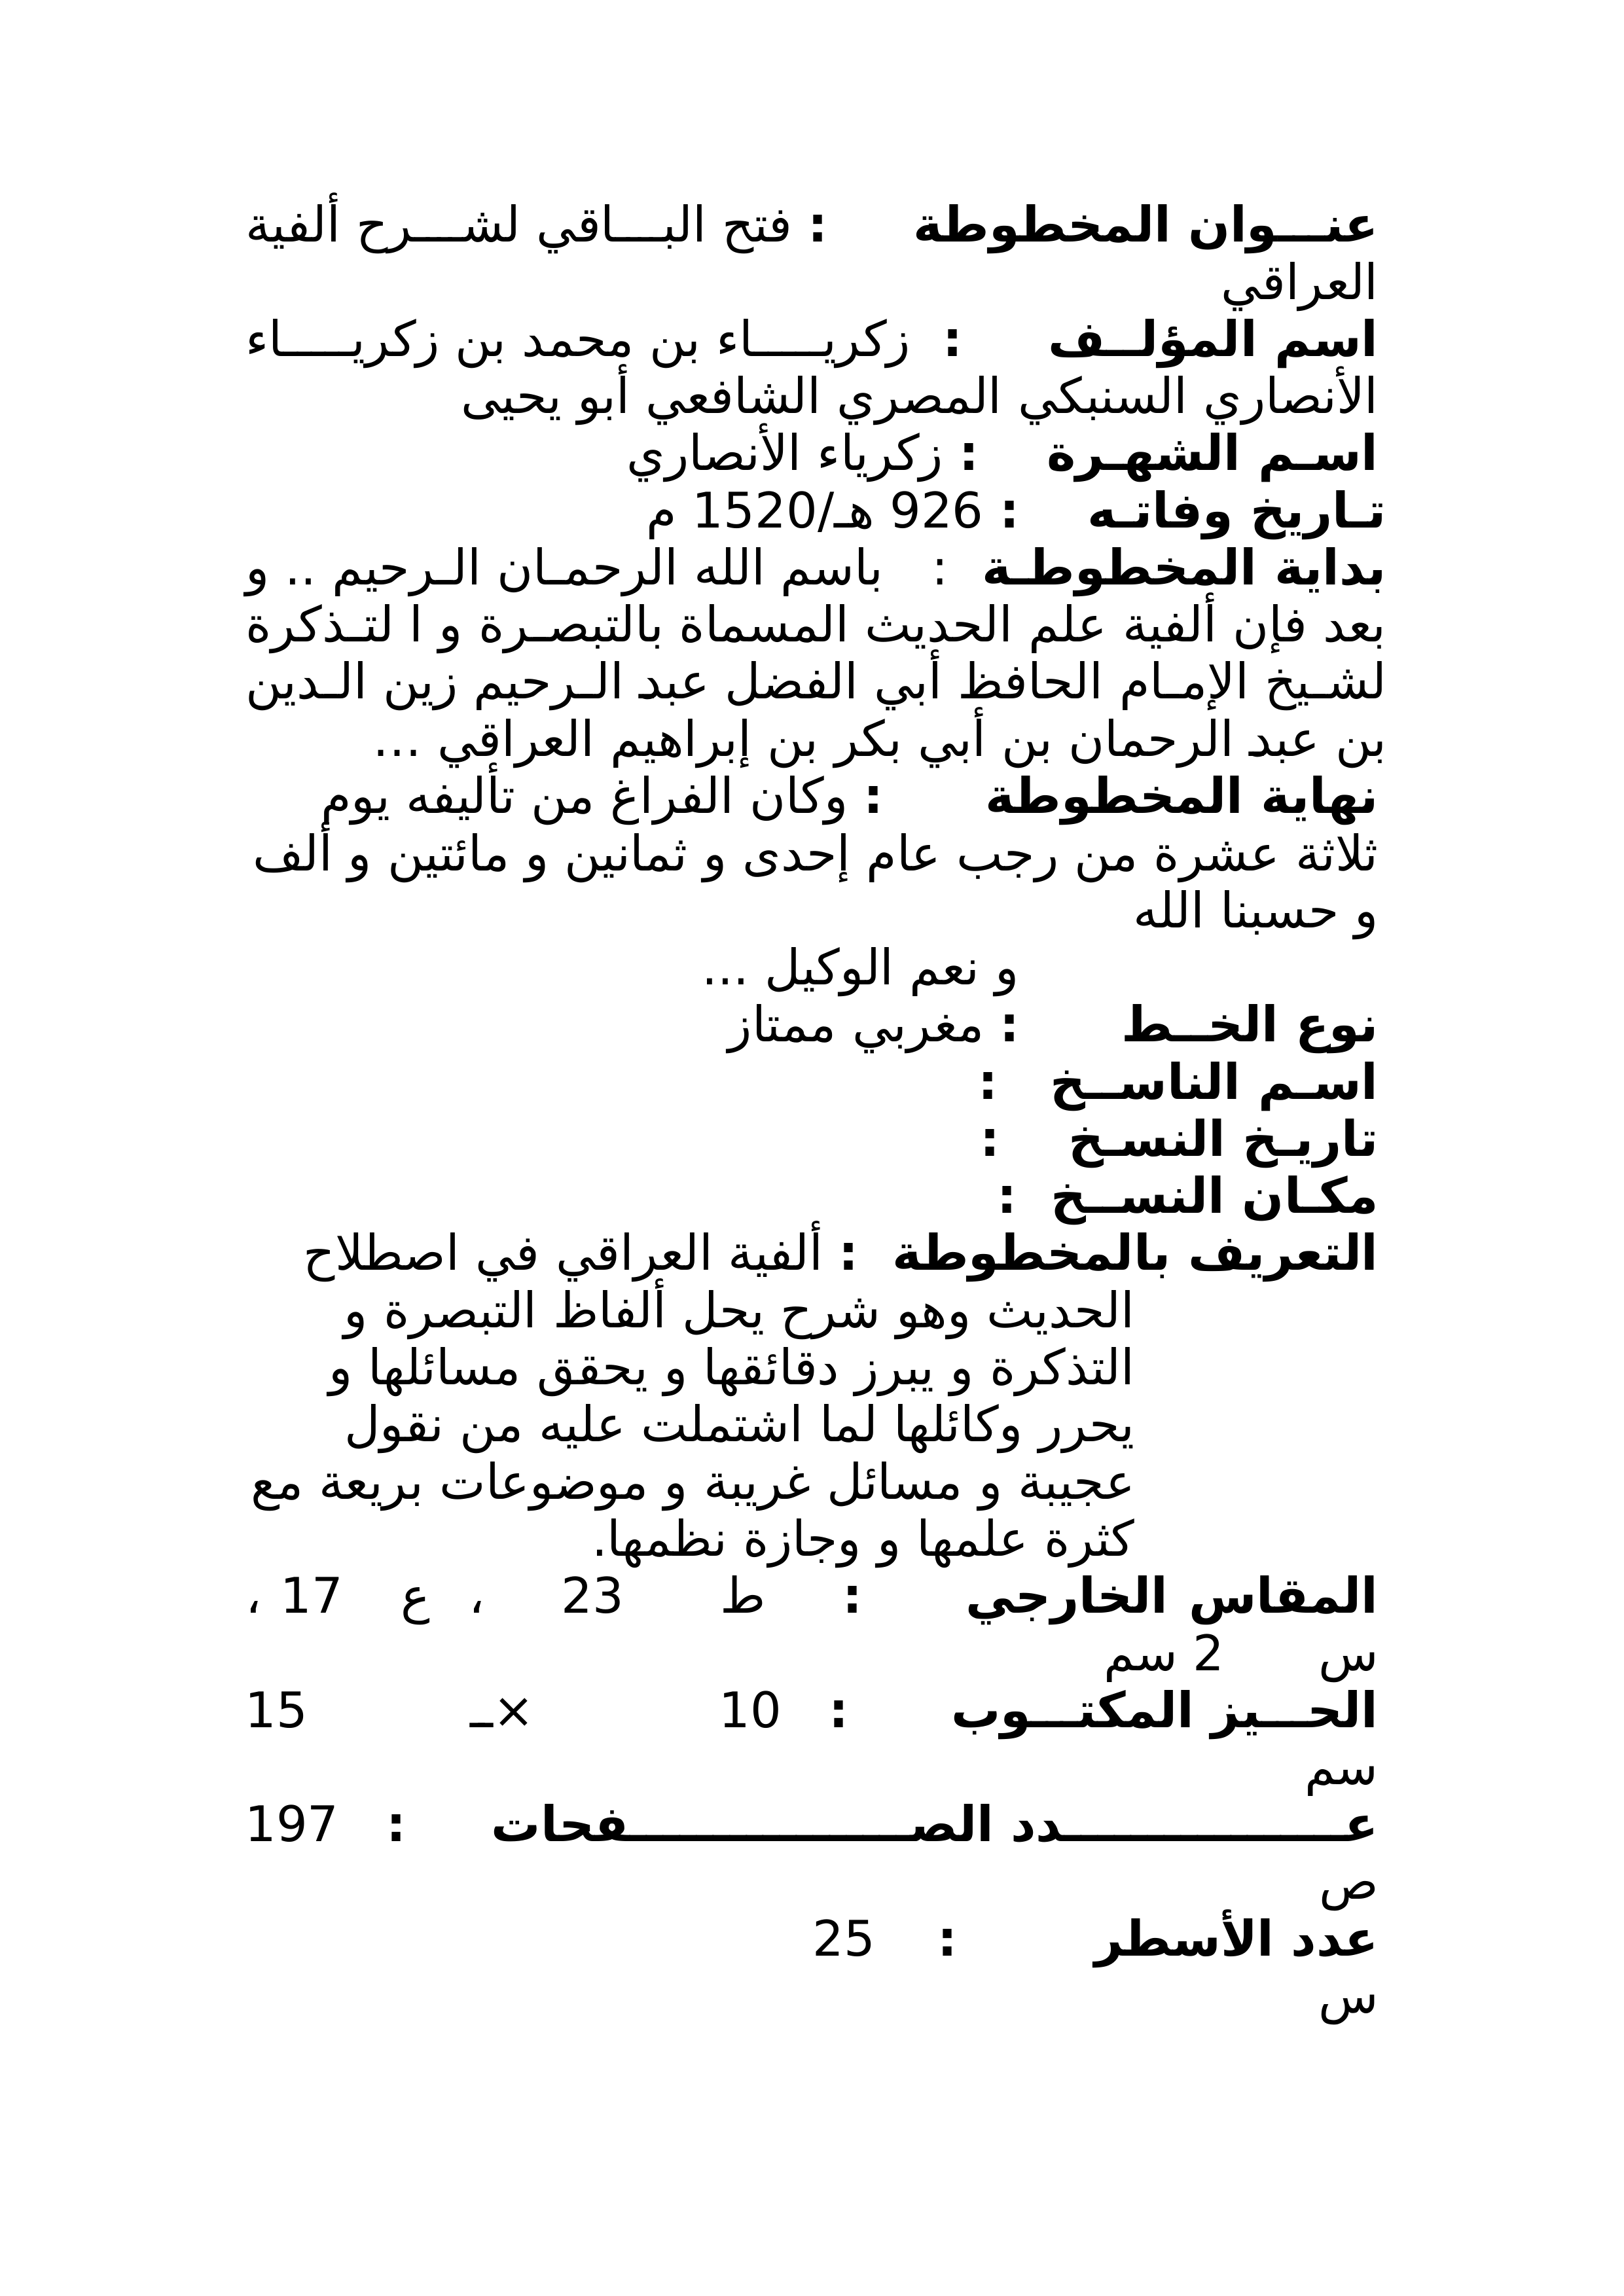 عنـــوان المخطوطة : فتح البـــاقي لشـــرح ألفية
العراقي
اسم المؤلــف : زكريـــــاء بن محمد بن زكريـــــاء
الأنصاري السنبكي المصري الشافعي أبو يحيى
اسـم الشهـرة : زكرياء الأنصاري
تـاريخ وفاتـه : 926 هـ/1520 م
بداية المخطوطـة : باسم الله الرحمـان الـرحيم .. و
بعد فإن ألفية علم الحديث المسماة بالتبصـرة و ا لتـذكرة
لشـيخ الإمـام الحافظ أبي الفضل عبد الـرحيم زين الـدين
بن عبد الرحمان بن أبي بكر بن إبراهيم العراقي ...
نهاية المخطوطة : وكان الفراغ من تأليفه يوم
ثلاثة عشرة من رجب عام إحدى و ثمانين و مائتين و ألف
و حسبنا الله
و نعم الوكيل ...
نوع الخــط : مغربي ممتاز
اسـم الناســخ :
تاريـخ النسـخ :
مكـان النســخ :
التعريف بالمخطوطة : ألفية العراقي في اصطلاح
الحديث وهو شرح يحل ألفاظ التبصرة و
التذكرة و يبرز دقائقها و يحقق مسائلها و
يحرر وكائلها لما اشتملت عليه من نقول
عجيبة و مسائل غريبة و موضوعات بريعة مع
كثرة علمها و وجازة نظمها.
المقاس الخارجي : ط 23 ، ع 17 ،
س 2 سم
الحـــيز المكتـــوب : 10 ×ـ 15
سم
عـــــــــــــــــدد الصـــــــــــــــــفحات : 197
ص
عدد الأسطر : 25
س